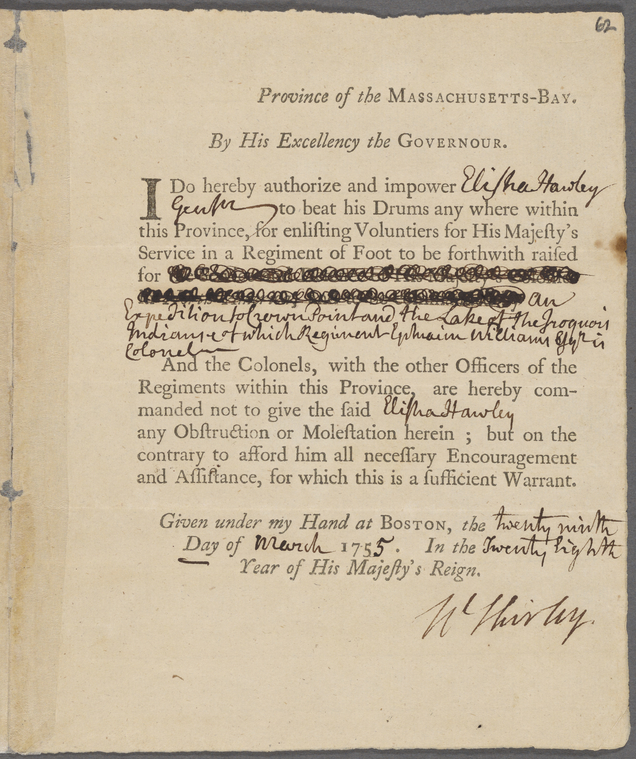 62
Province of the MASSACHUSETTS-BAY.
By His Excellency the GOVERNOUR.
I Do hereby authorize and impower Eliſha Hawley
Gentn to beat his Drums any where within
this Province, for enliſting Voluntiers for His Majeſty's
Service in a Regiment of Foot to be forthwith raiſed
for
an
Expedition to Crown Point and the Lake of the Iroquois
Indians of which Regiment Ephraim Williams Eſqr is
Colonel
And the Colonels, with the other Officers of the
Regiments within this Province, are hereby com-
manded not to give the ſaid Eliſha Hawley
any Obſtruction or Moleſtation herein ; but on the
contrary to afford him all neceſſary Encouragement
and Aſſiſtance, for which this is a ſufficient Warrant.
Given under my Hand at BOSTON, the twenty ninth
Day of March 1755. In the Twenty Eighth
Year of His Majeſty's Reign.
W Shirley.